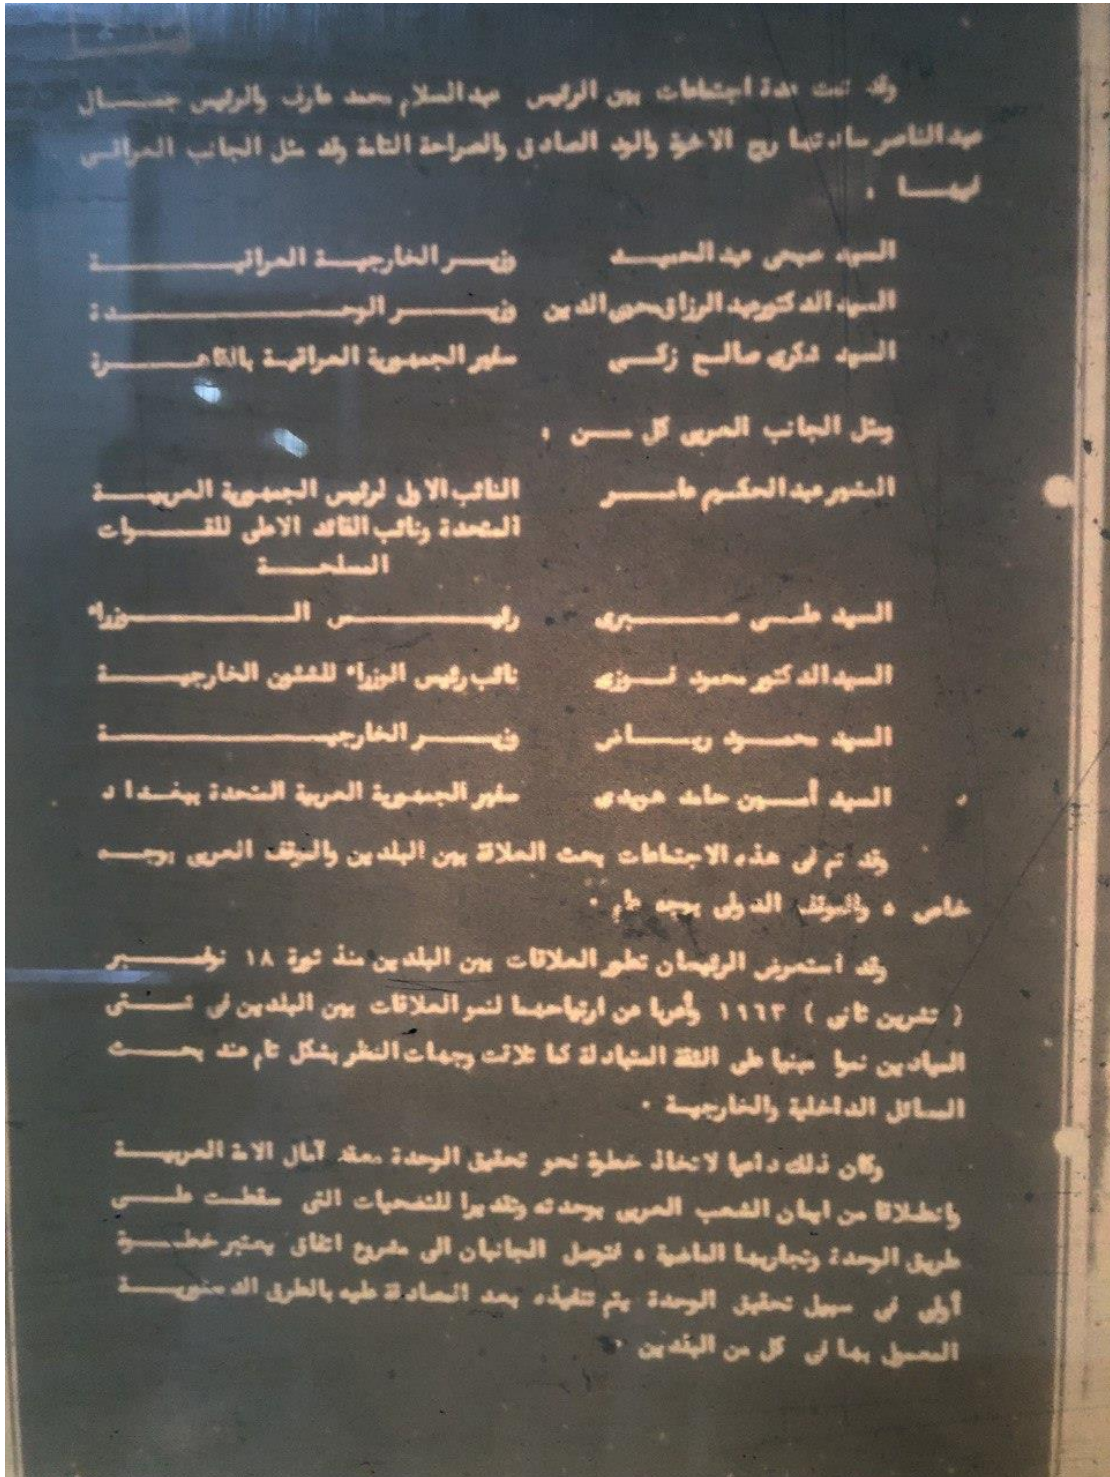 وقد تمت عدة اجتماعات بين الرئيس عبد السلام محمد عارف والرئيس جمال
عبد الناصر سادتها روح الاخوة والود الصادق والصراحة التامة وقد مثل الجانب العراقي
فيها :
السيد صبحى عبد الحميد وزير الخارجية العراقية
السيد الدكتور عبد الرزاق محى الدين وزير الوحدة
السيد شكرى صالح زكى سفير الجمهورية العراقية بالقاهرة
ومثل الجانب العربى كل من :
المشير عبد الحكيم عامر النائب الاول لرئيس الجمهورية العربية
المتحدة ونائب القائد الاعلى للقوات
المسلحة
السيد على صبرى رئيس الوزراء
السيد الدكتور محمود فوزى نائب رئيس الوزراء للشئون الخارجية
السيد محمود رياض وزير الخارجية
السيد أمين حامد هويدى سفير الجمهورية العربية المتحدة ببغداد
وقد تم فى هذه الاجتماعات بحث العلاقة بين البلدين والموقف العربى بوجه
خاص ، والموقف الدولى بوجه عام .
وقد استعرض الرئيسان تطور العلاقات بين البلدين منذ ثورة ١٨ نوفمبر
( تشرين ثانى ) ١٩٦٣ وأعربا عن ارتياحهما لنمو العلاقات بين البلدين فى شتى
الميادين نموا مبنيا على الثقة المتبادلة كما تلاقت وجهات النظر بشكل تام عند بحث
المسائل الداخلية والخارجية .
وكان ذلك داعيا لاتخاذ خطوة نحو تحقيق الوحدة معقد آمال الامة العربية
وانطلاقا من ايمان الشعب العربى بوحدته وتقديرا للتضحيات التى سقطت على
طريق الوحدة وتجاربها الماضية ، فتوصل الجانبان الى مشروع اتفاق يعتبر خطوة
أولى فى سبيل تحقيق الوحدة يتم تنفيذه بعد المصادقة عليه بالطرق الدستورية
المعمول بها فى كل من البلدين .